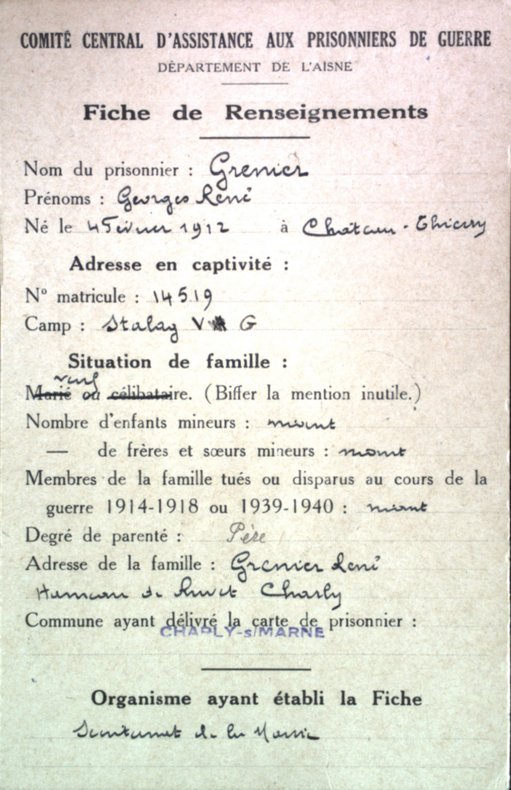 COMITÉ CENTRAL D'ASSISTANCE AUX PRISONNIERS DE GUERRE
DÉPARTEMENT DE L'AISNE
Fiche de Renseignements
Nom du prisonnier : Grenier
Prénoms : Georges René
Né le 4 Février 1912 à Château-Thierry
Adresse en captivité :
N° matricule : 14519
Camp : Stalag V G
Situation de famille :
veuf
Marié ou célibataire. (Biffer la mention inutile.)
Nombre d'enfants mineurs : néant
— de frères et sœurs mineurs : néant
Membres de la famille tués ou disparus au cours de la
guerre 1914-1918 ou 1939-1940 : néant
Degré de parenté : Père
Adresse de la famille : Grenier René
Hameau de Charly
Commune ayant délivré la carte de prisonnier :
CHARLY-s/MARNE
Organisme ayant établi la Fiche
Secrétariat de la Mairie